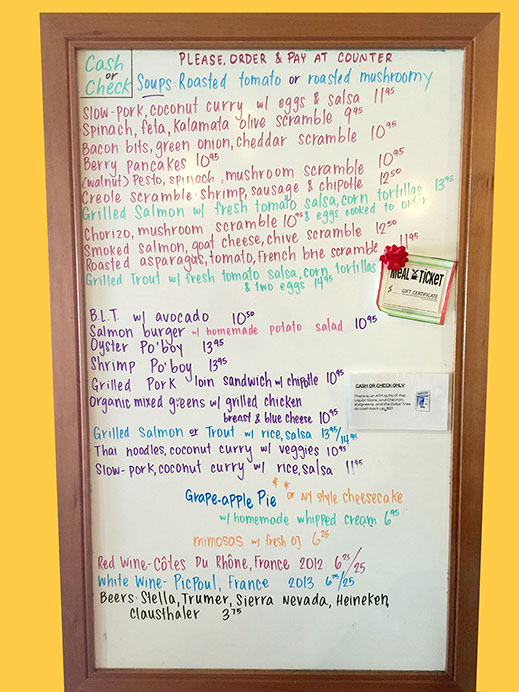 Cash or Check
PLEASE, ORDER & PAY AT COUNTER
SOUPS: Roasted tomato or roasted mushroomy
Slow-pork, coconut curry w/ eggs & salsa 11⁹⁵
Spinach, feta, Kalamata olive scramble 9⁹⁵
Bacon bits, green onion, cheddar scramble 10⁹⁵
Berry pancakes 10⁹⁵
(walnut) Pesto, spinach, mushroom scramble 10⁹⁵
Creole scramble: shrimp, sausage & chipotle 12⁵⁰
Grilled Salmon w/ fresh tomato salsa, corn tortillas 13⁹⁵
& eggs cooked to order
Chorizo, mushroom scramble 10⁹⁵
Smoked salmon, goat cheese, chive scramble 12⁵⁰
Roasted asparagus, tomato, French brie scramble 11⁹⁵
Grilled Trout w/ fresh tomato salsa, corn tortillas
& two eggs 14⁹⁵
MEAL TICKET
$
GIFT CERTIFICATE
B.L.T. w/ avocado 10⁵⁰
Salmon burger w/ homemade potato salad 10⁹⁵
Oyster Po'boy 13⁹⁵
Shrimp Po'boy 13⁹⁵
Grilled Pork loin sandwich w/ chipotle 10⁹⁵
Organic mixed greens w/ grilled chicken
breast & blue cheese 10⁹⁵
Grilled Salmon or Trout w/ rice, salsa 13⁹⁵/14⁹⁵
Thai noodles, coconut curry w/ veggies 10⁹⁵
Slow-pork, coconut curry w/ rice, salsa 11⁹⁵
CASH OR CHECK ONLY
There is an ATM at
Liquor Store, and Chevron,
Walgreens, and the Dollar Tree
do cash back up
Grape-apple Pie * * or NY style cheesecake
w/ homemade whipped cream 6⁹⁵
mimosas w/ fresh OJ 6²⁵
Red Wine-Côtes Du Rhône, France 2012 6²⁵/25
White Wine- Picpoul, France 2013 /25
Beers: Stella, Trumer, Sierra Nevada, Heineken,
Clausthaler 3⁷⁵